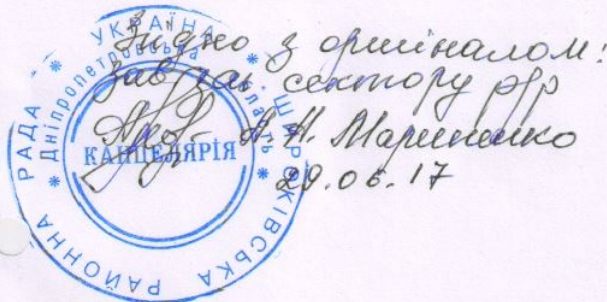 Згідно з оригіналом:
Зав. заг. сектору
А. Н. Мариненко
29.06.17
УКРАЇНА
ШИРОКІВСЬКА РАЙОННА РАДА
Дніпропетровська область
КАНЦЕЛЯРІЯ